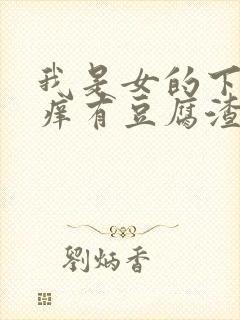 我是女的下
痒有豆腐渣
劉炳香